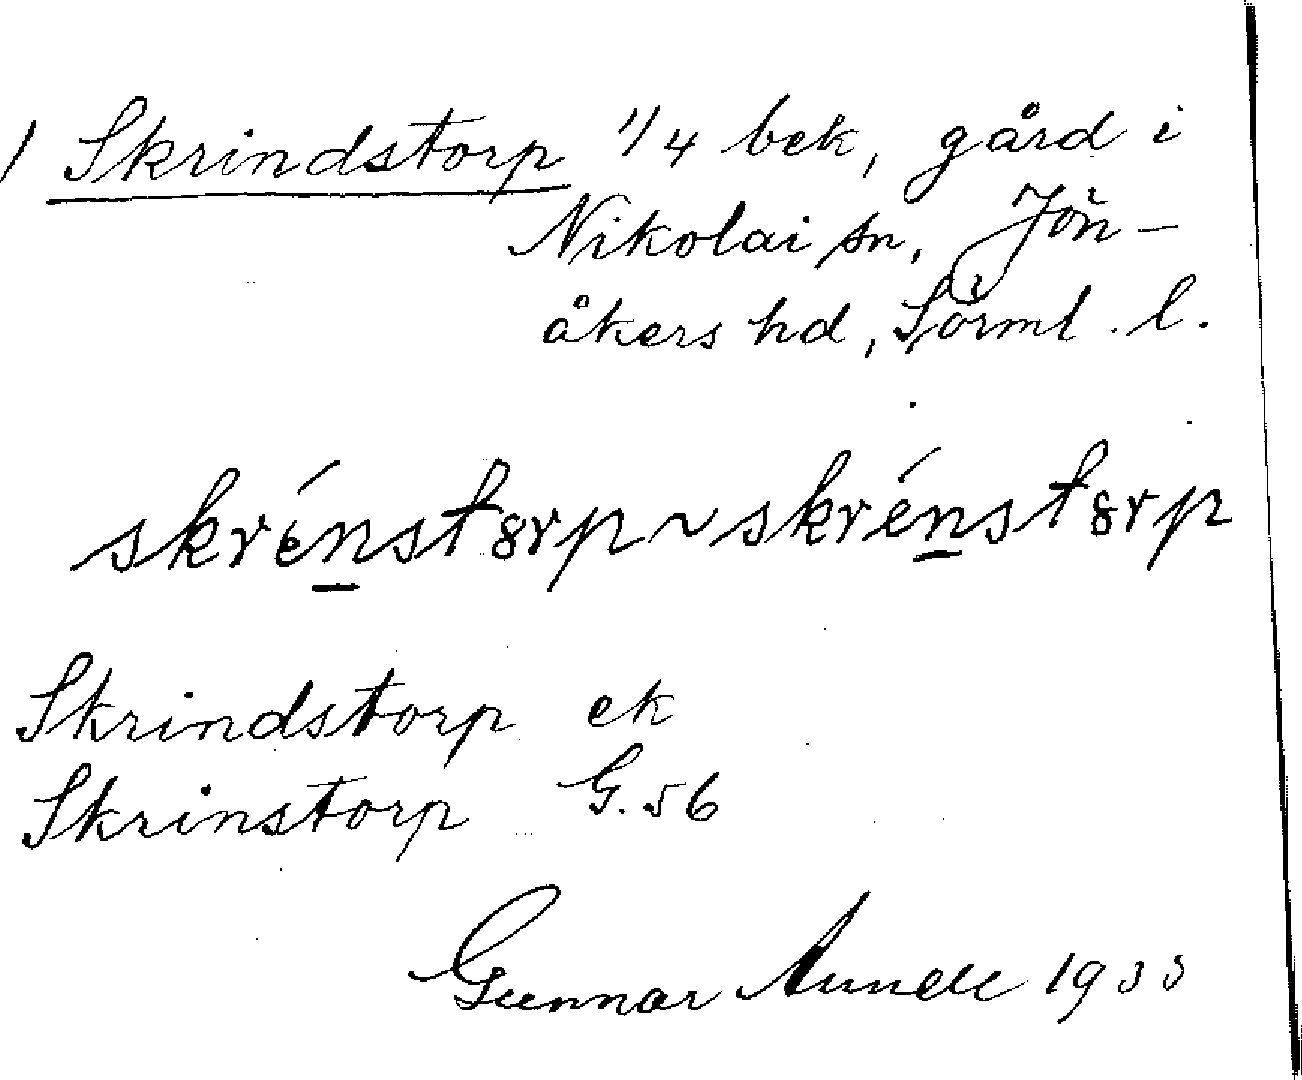 / Skrindstorp 1/4 bek, gård i
Nikolai sn, Jön-
åkers hd, Sörml. l.
skrénstorp ~ skrénstorp
Skrindstorp ek
Skrinstorp G. 56
Gunnar 1933